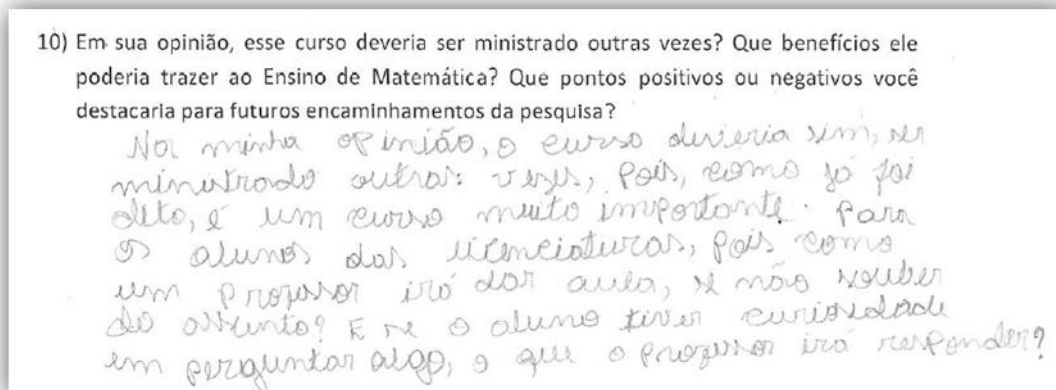 10) Em sua opinião, esse curso deveria ser ministrado outras vezes? Que benefícios ele
poderia trazer ao Ensino de Matemática? Que pontos positivos ou negativos você
destacaria para futuros encaminhamentos da pesquisa?
Na minha opinião, o curso deveria sim, ser
ministrado outras vezes, pois, como já foi
dito, é um curso muito importante para
os alunos das licenciaturas, pois como
um professor irá dar aula, se não souber
do assunto? E se o aluno tiver curiosidade
em perguntar algo, o que o professor irá responder?